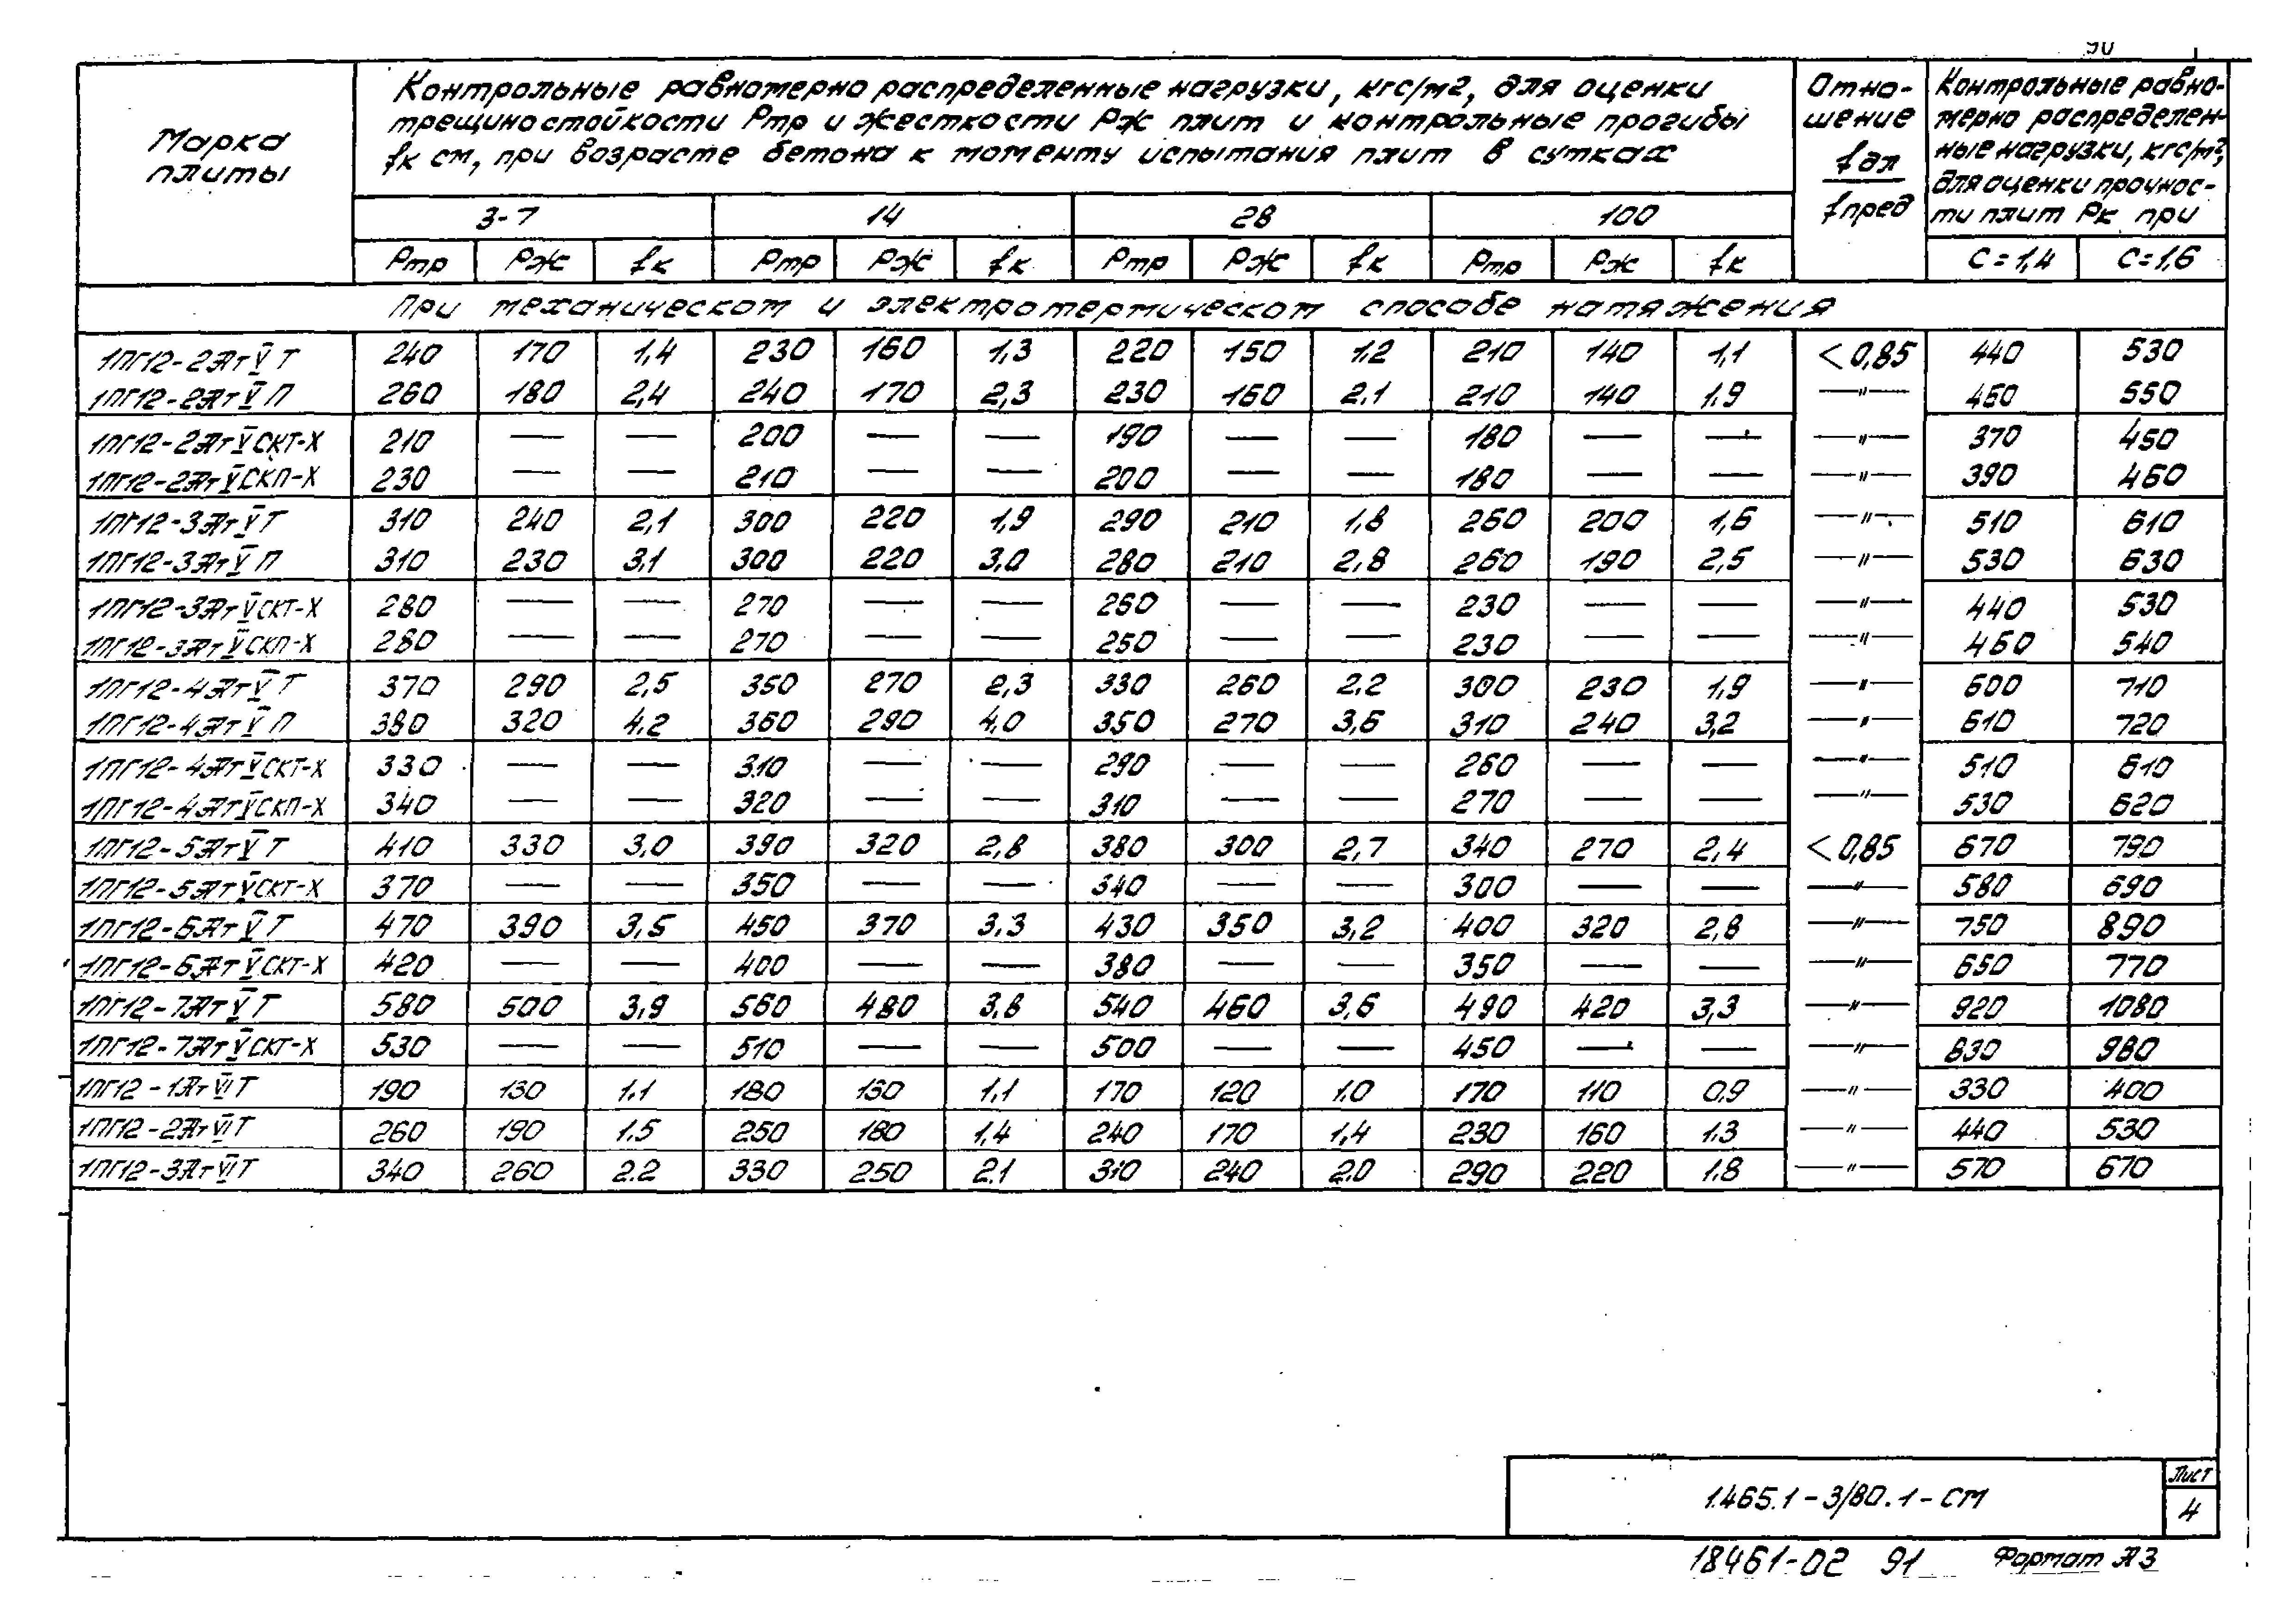 90
Марка плиты
Контрольные равномерно распределенные нагрузки, кгс/м2, для оценки
трещиностойкости Ртр и жесткости Рж плит и контрольные прогибы
fк см, при возрасте бетона к моменту испытания плит в сутках
Отно-
шение
fдл
fпред
Контрольные равно-
мерно распределен-
ные нагрузки, кгс/м2,
для оценки прочнос-
ти плит Рк при
3-7 14 28 100
Ртр Рж fк Ртр Рж fк Ртр Рж fк Ртр Рж fк С=1,4 С=1,6
При механическом и электротермическом способе натяжения
1ПГ12-2АтV Т 240 170 1,4 230 160 1,3 220 150 1.2 210 140 1,1 <0,85 440 530
1ПГ12-2АтV П 260 180 2,4 240 170 2,3 230 160 2.1 210 140 1.9 —"— 460 550
1ПГ12-2АтVСКТ-Х 210 — — 200 — — 190 — — 180 — — —"— 370 450
1ПГ12-2АтVСКП-Х 230 — — 210 — — 200 — — 180 — — —"— 390 460
1ПГ12-3АтVТ 310 240 2,1 300 220 1,9 290 210 1,8 260 200 1,6 —"— 510 610
1ПГ12-3АтV П 310 230 3,1 300 220 3,0 280 210 2,8 260 190 2,5 —"— 530 630
1ПГ12-3АтVСКТ-Х 280 — — 270 — — 260 — — 230 — — —"— 440 530
1ПГ12-3АтVСКП-Х 280 — — 270 — — 250 — — 230 — — —"— 460 540
1ПГ12-4АтV Т 370 290 2,5 350 270 2,3 330 260 2.2 300 230 1,9 —"— 600 710
1ПГ12-4АтV П 380 320 4.2 360 290 4,0 350 270 3,6 310 240 3,2 —"— 610 720
1ПГ12-4АтVСКТ-Х 330 — — 310 — — 290 — — 260 — — —"— 510 610
1ПГ12-4АтVСКП-Х 340 — — 320 — — 310 — — 270 — — —"— 530 620
1ПГ12-5АтV Т 410 330 3,0 390 320 2,8 380 300 2,7 340 270 2,4 <0,85 670 790
1ПГ12-5АтVСКТ-Х 370 — — 350 — — 340 — — 300 — — —"— 580 690
1ПГ12-6АтV Т 470 390 3,5 450 370 3.3 430 350 3,2 400 320 2,8 —"— 750 890
1ПГ12-6АтVСКТ-Х 420 — — 400 — — 380 — — 350 — — —"— 650 770
1ПГ12-7АтV Т 580 500 3,9 560 480 3.8 540 460 3,6 490 420 3,3 —"— 920 1080
1ПГ12-7АтVСКТ-Х 530 — — 510 — — 500 — — 450 — — —"— 830 980
1ПГ12-1АтVIТ 190 130 1.1 180 130 1,1 170 120 1.0 170 110 0.9 —"— 330 400
1ПГ12-2АтVIТ 260 190 1.5 250 180 1,4 240 170 1,4 230 160 1.3 —"— 440 530
1ПГ12-3АтVIТ 340 260 2.2 330 250 2.1 310 240 2.0 290 220 1.8 —"— 570 670
1.465.1-3/80.1-СМ
Лист
4
18461-02 91 Формат А3